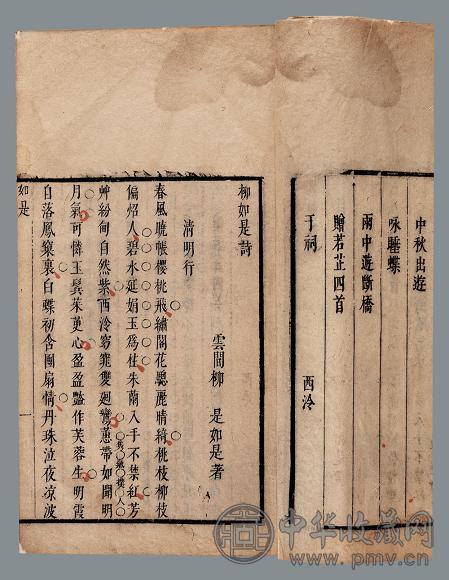 中秋出遊
咏睡蝶
雨中遊斷橋
贈若芷四首
于祠
西泠
柳如是詩
雲間柳 是如是著
清明行
春風曉帳櫻桃飛繡閣花驄麗晴綺桃枝柳枝
偏炤人碧水延娟玉為柱朱蘭入手不禁紅芳
艸紛甸自然紫西泠窈窕雙廻鸞蕙帶如聞明
月氣可憐玉鬢茱萸心盈盈豔作芙蓉生明霞
自落鳳窠裏白蝶初含團扇情丹珠泣夜凉波
如是
一
中华收藏网
www.pmv.cn